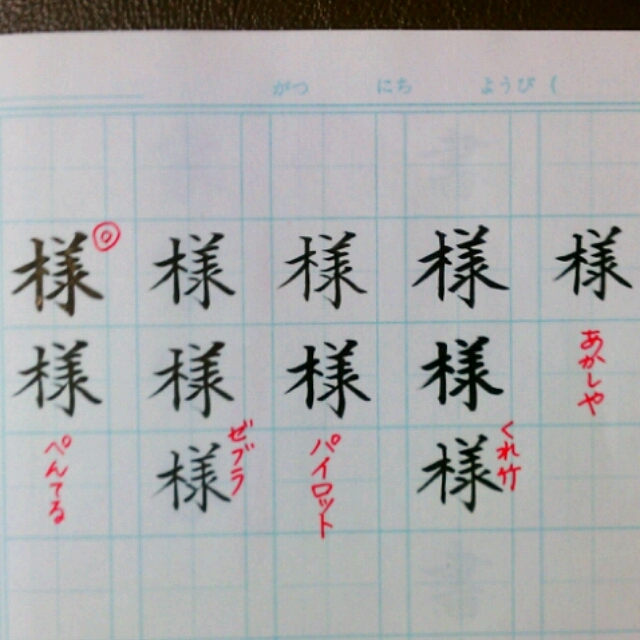 がつ にち ようび (
様 ◎ 様 様 様 様
様 様 様 様
あかしや
ぺんてる
様
ゼブラ
パイロット
様
くれ竹